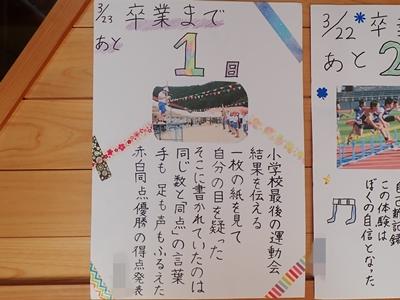 3/23 卒業まで
あと
1回
小学校最後の運動会
結果を伝える
一枚の紙を見て
自分の目を疑った
そこに書かれていたのは
同じ数と「同点」の言葉
手も足も声もふるえた
赤白同点優勝の得点発表
3/22 卒
あと
2
自己新記録
この体験は
ぼくの自信となった